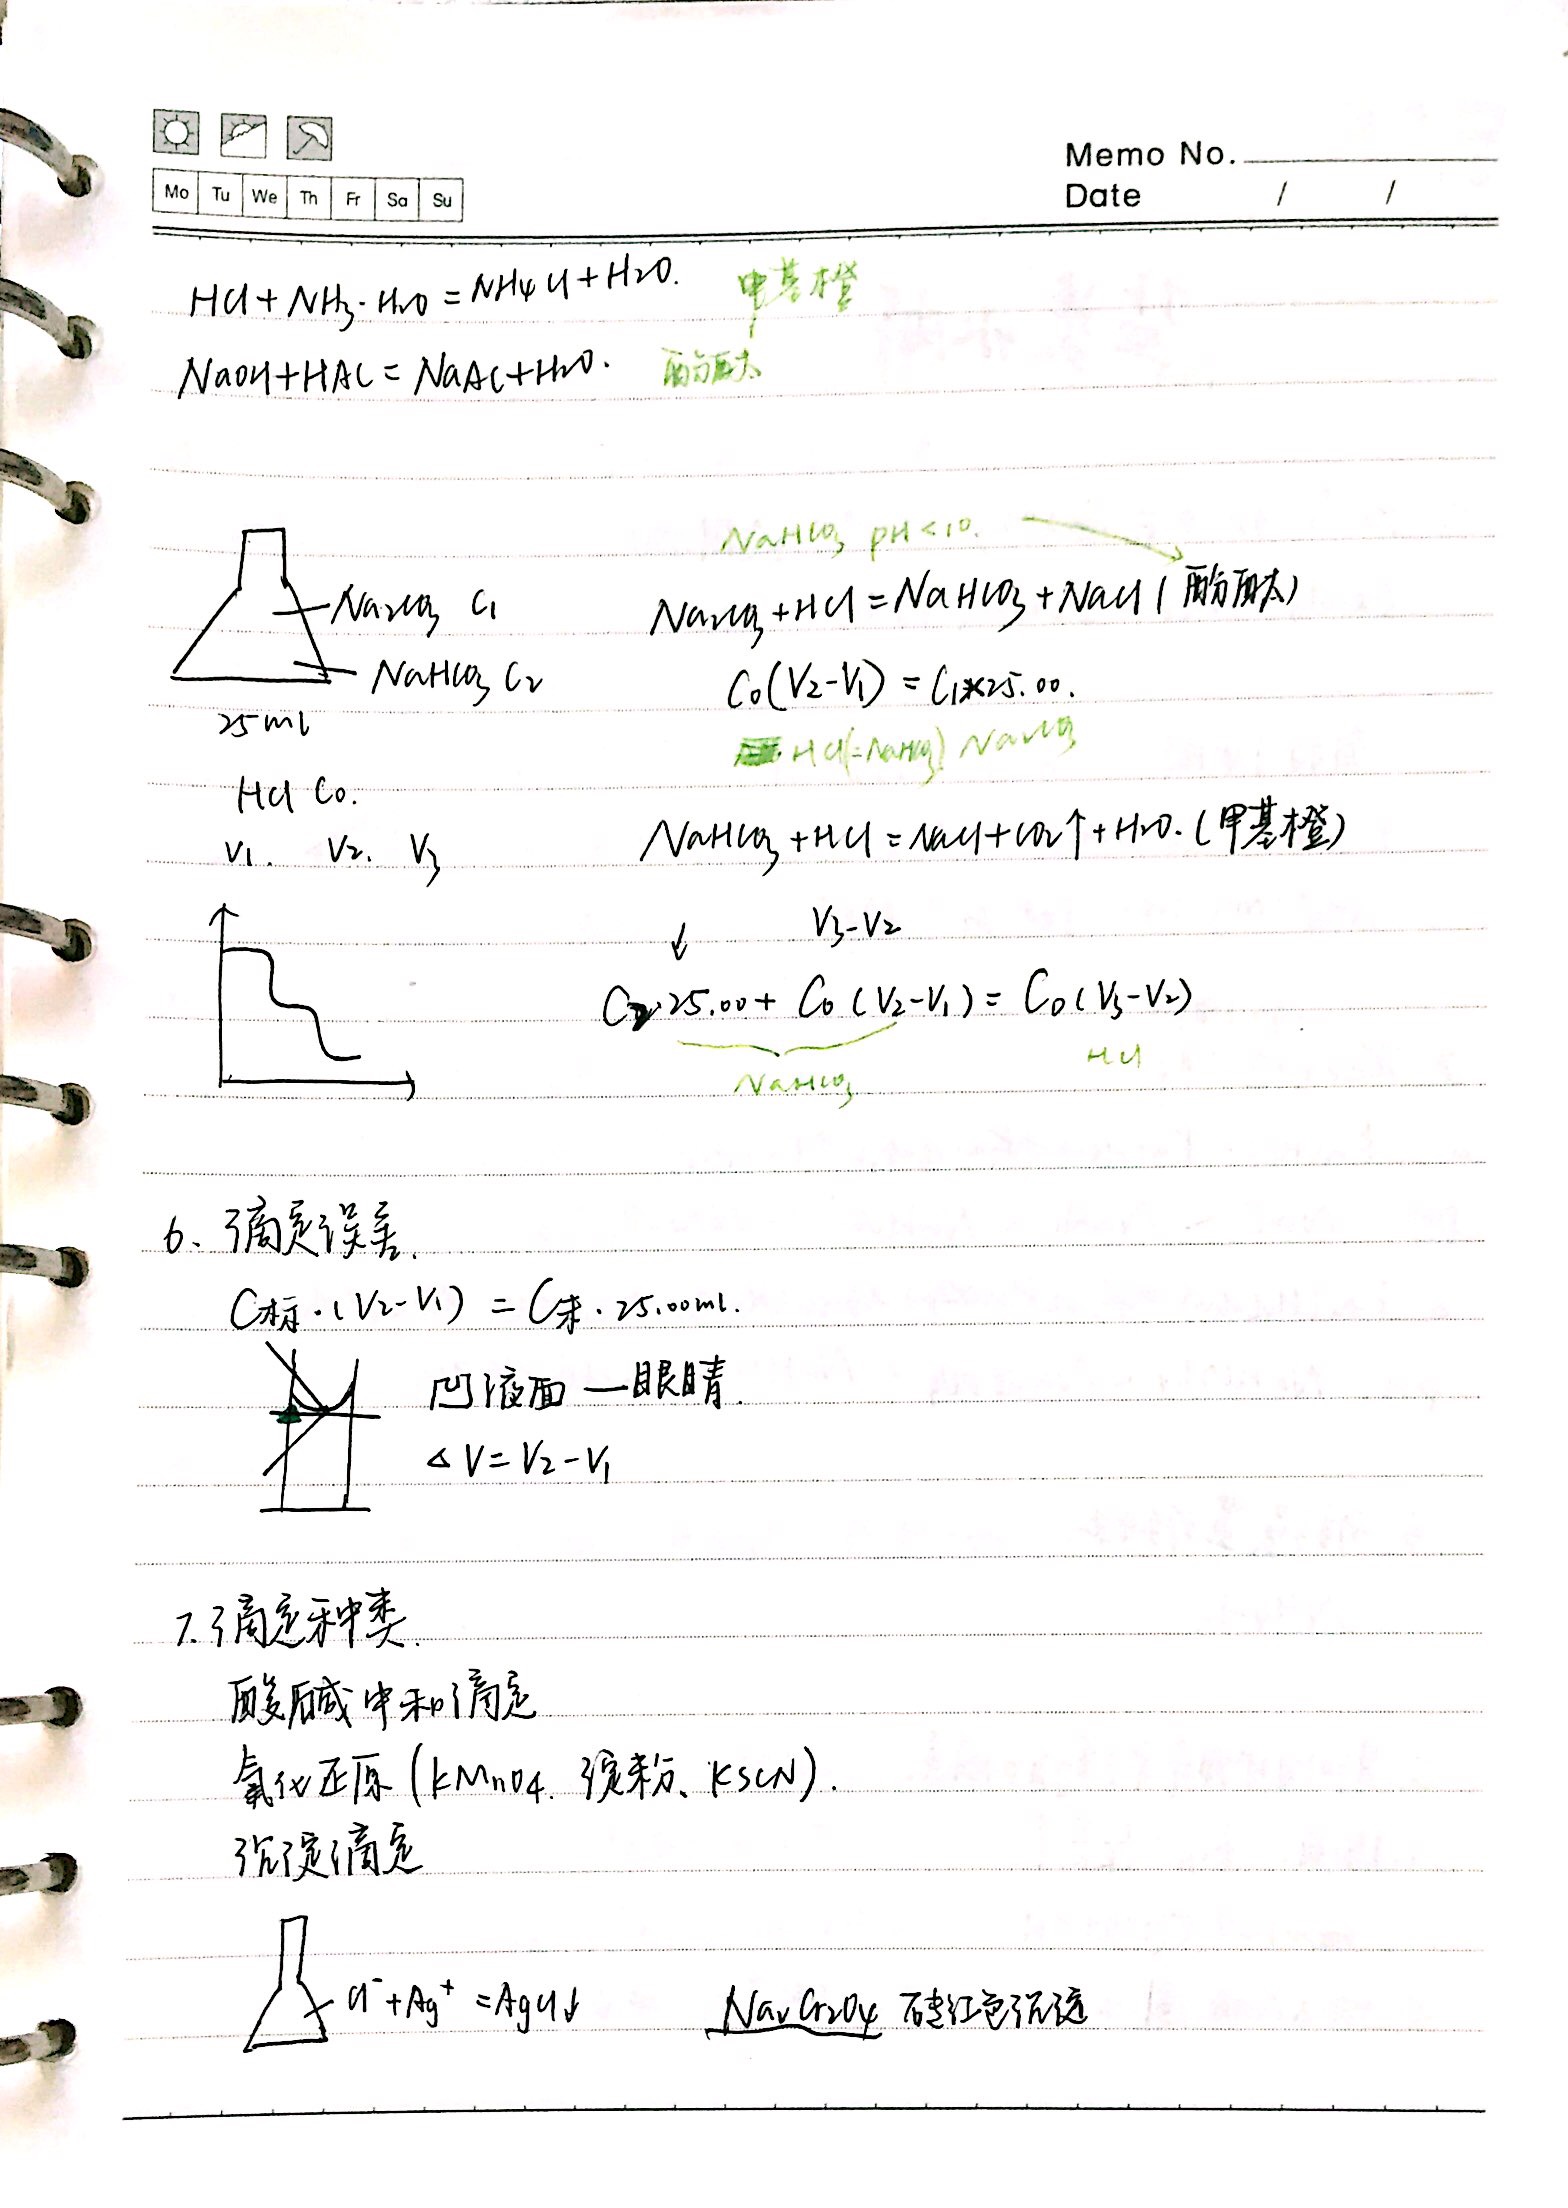 Memo No.
Mo Tu We Th Fr Sa Su
Date / /
HCl + NH₃·H₂O = NH₄Cl + H₂O. 甲基橙
NaOH + HAc = NaAc + H₂O. 酚酞
NaHCO₃ pH<10.
Na₂CO₃ C₁
Na₂CO₃ + HCl = NaHCO₃ + NaCl (酚酞)
NaHCO₃ C₂
C₀(V₂-V₁) = C₁×25.00.
25ml
HCl(=NaHCO₃) Na₂CO₃
HCl C₀.
NaHCO₃ + HCl = NaCl + CO₂↑ + H₂O. (甲基橙)
V₁. V₂. V₃
↓ V₃-V₂
C₂·25.00 + C₀(V₂-V₁) = C₀(V₃-V₂)
NaHCO₃ HCl
6、滴定误差.
C标·(V₂-V₁) = C未·25.00ml.
凹液面—眼睛.
△V = V₂-V₁
7.滴定种类.
酸碱中和滴定
氧化还原 (KMnO₄. 淀粉、KSCN).
沉淀滴定
Cl⁻ + Ag⁺ = AgCl↓ Na₂Cr₂O₄ 砖红色沉淀